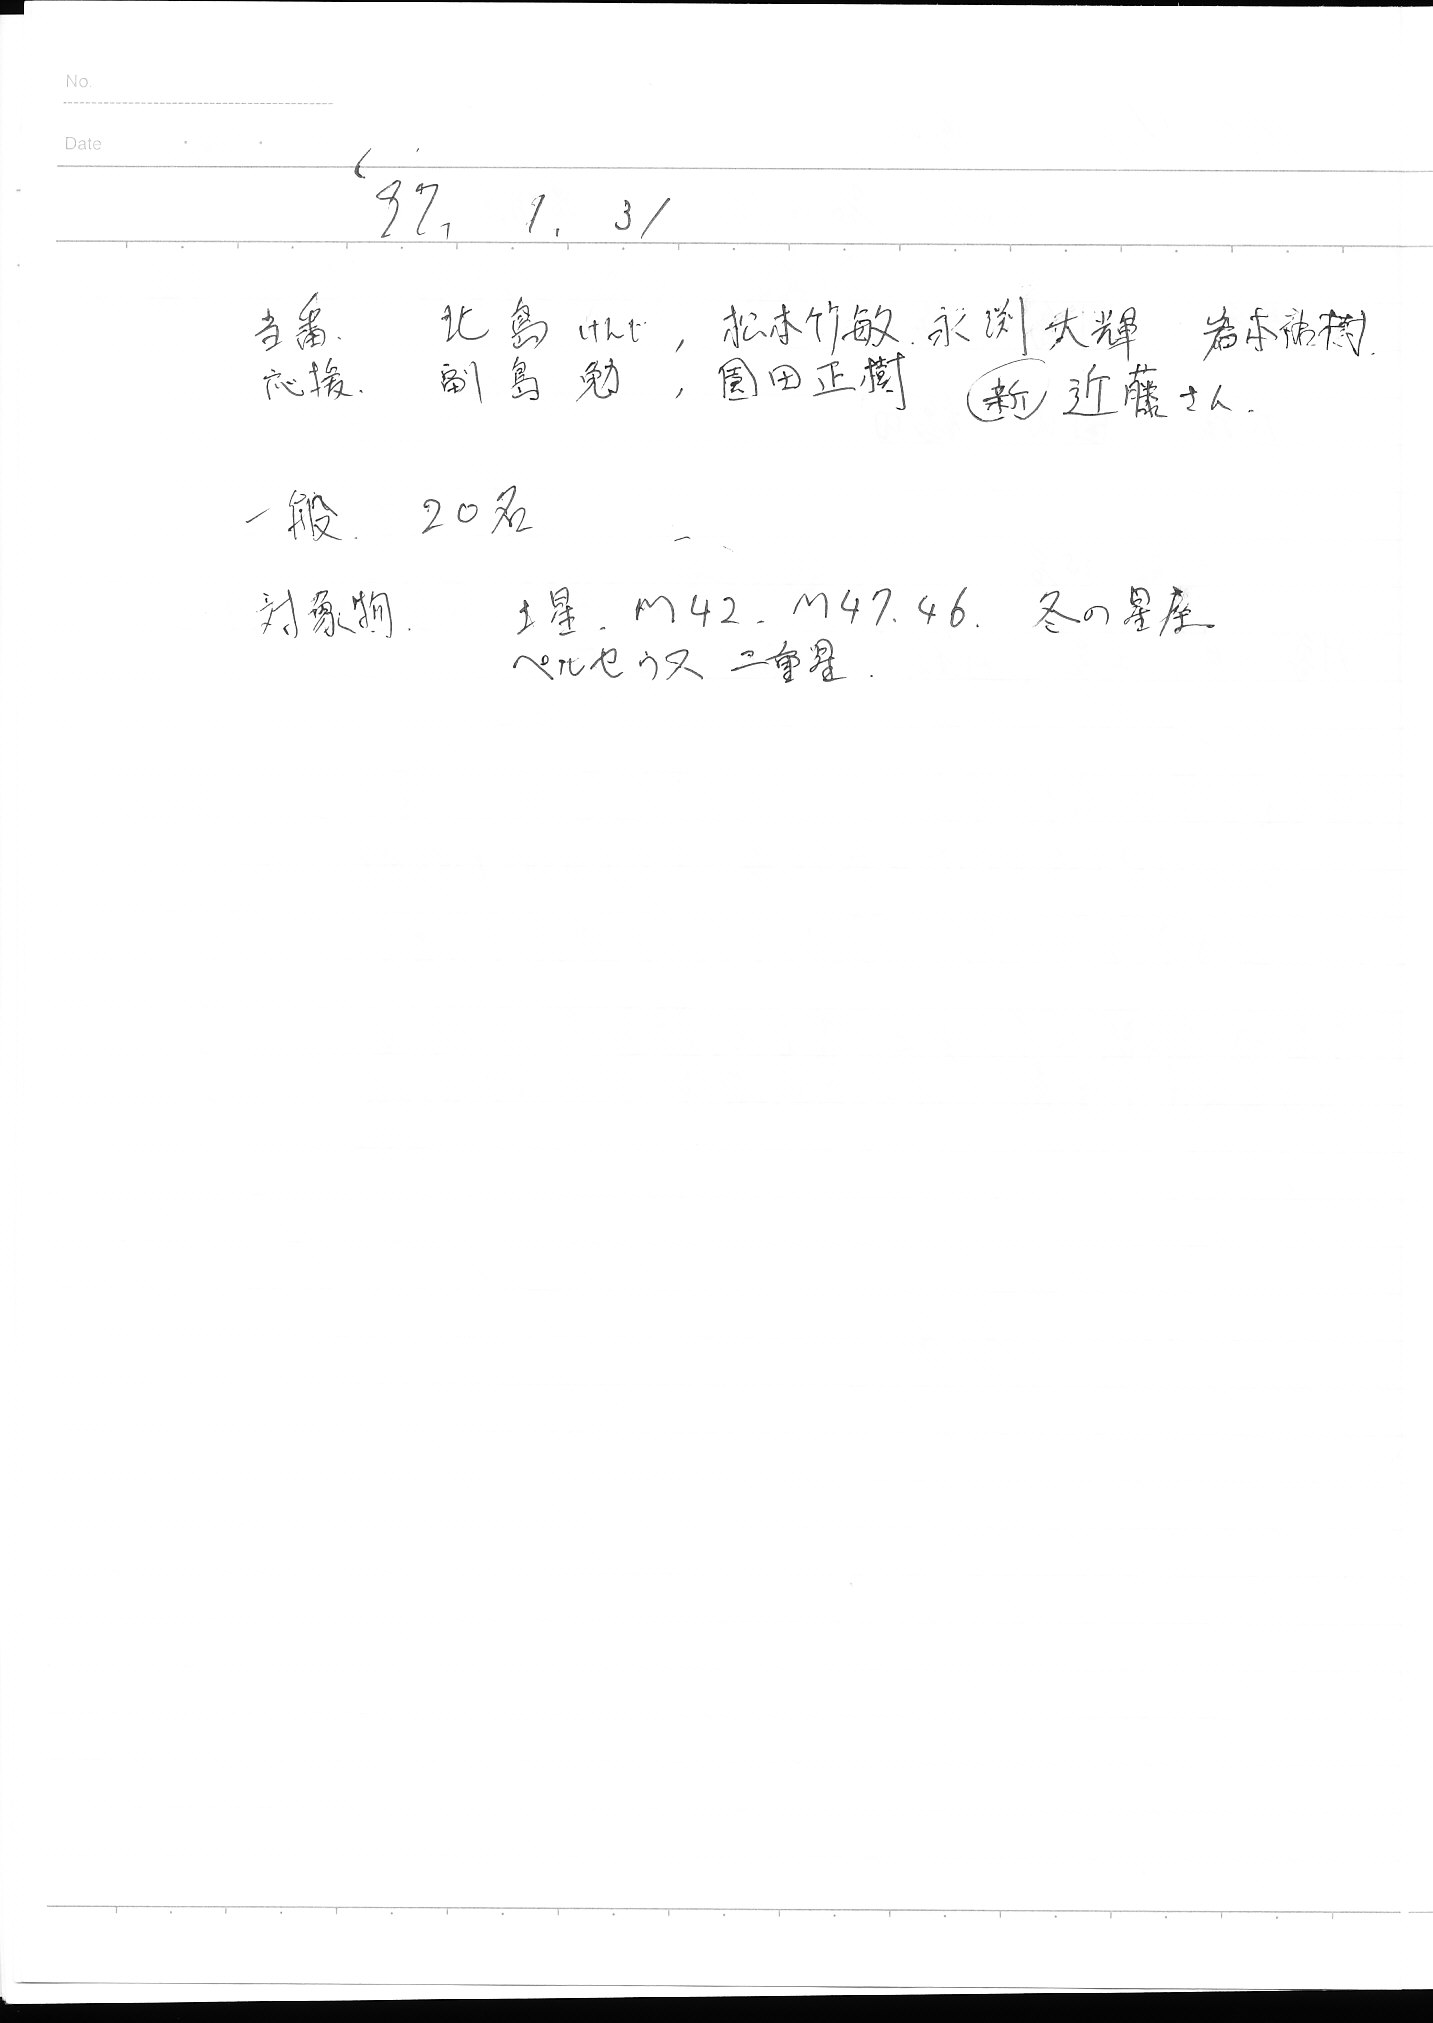 No.
Date
'97. 1. 31
当番. 北島けんじ, 松本竹敏. 永渕大輝 為本祐樹.
応援. 副島勉, 園田正樹 新 近藤さん.
一般. 20名
対象物. 土星. M42. M47.46. 冬の星座
ペルセウス 二重星.